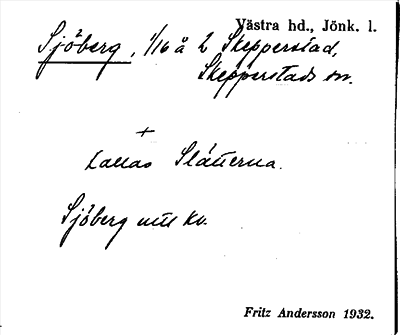 Västra hd., Jönk. l.
Sjöberg, 1/16 å 2 Skepperstad,
Skepperstads sn.
+
kallas Slätterna.
Sjöberg utt kv.
Fritz Andersson 1932.